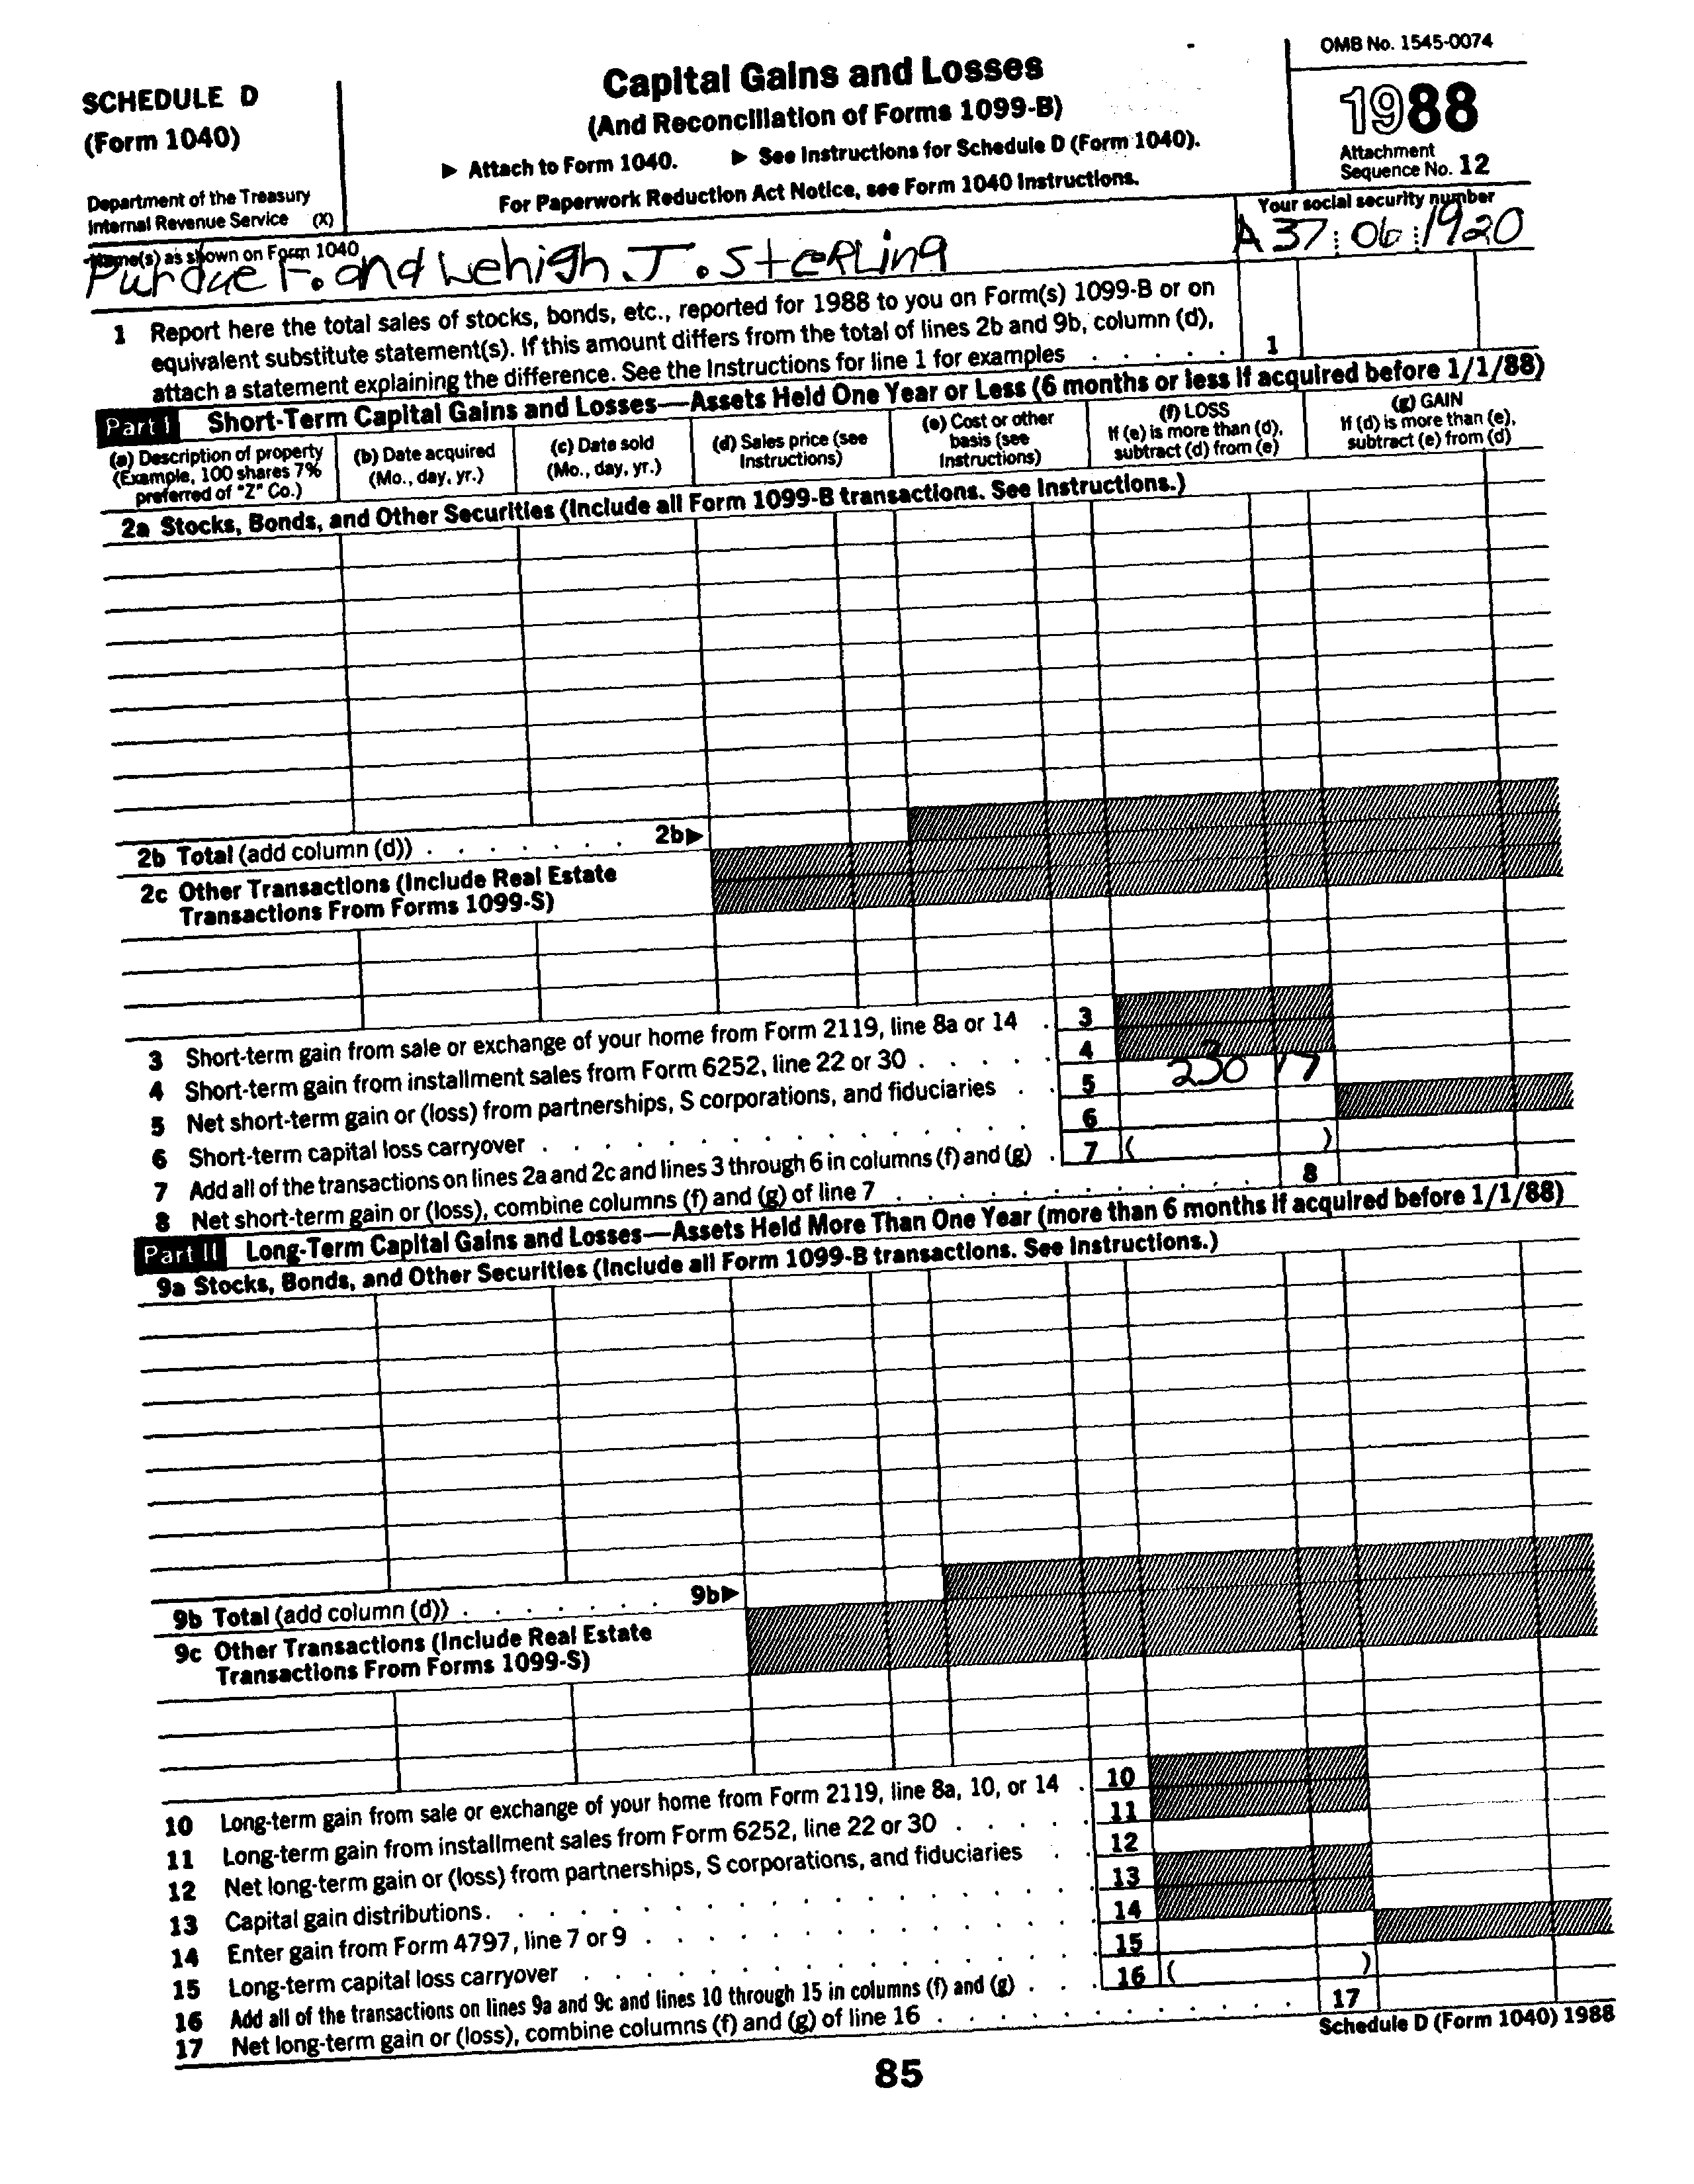 SCHEDULE D
(Form 1040)
Department of the Treasury
Internal Revenue Service (X)
Capital Gains and Losses
(And Reconciliation of Forms 1099-B)
▶ Attach to Form 1040. ▶ See Instructions for Schedule D (Form 1040).
For Paperwork Reduction Act Notice, see Form 1040 Instructions.
OMB No. 1545-0074
1988
Attachment
Sequence No. 12
Name(s) as shown on Form 1040
Purdue F. and Lehigh J. Sterling
Your social security number
A 37 06 1920
1 Report here the total sales of stocks, bonds, etc., reported for 1988 to you on Form(s) 1099-B or on
equivalent substitute statement(s). If this amount differs from the total of lines 2b and 9b, column (d),
attach a statement explaining the difference. See the Instructions for line 1 for examples . . . . . 1
Part I Short-Term Capital Gains and Losses—Assets Held One Year or Less (6 months or less if acquired before 1/1/88)
(a) Description of property
(Example, 100 shares 7%
preferred of "Z" Co.)
(b) Date acquired
(Mo., day, yr.)
(c) Date sold
(Mo., day, yr.)
(d) Sales price (see
Instructions)
(e) Cost or other
basis (see
Instructions)
(f) LOSS
If (e) is more than (d),
subtract (d) from (e)
(g) GAIN
If (d) is more than (e),
subtract (e) from (d)
2a Stocks, Bonds, and Other Securities (Include all Form 1099-B transactions. See Instructions.)
2b Total (add column (d)) . . . . . . . 2b▶
2c Other Transactions (Include Real Estate
Transactions From Forms 1099-S)
3 Short-term gain from sale or exchange of your home from Form 2119, line 8a or 14 . 3
4 Short-term gain from installment sales from Form 6252, line 22 or 30 . . . . . 4
5 Net short-term gain or (loss) from partnerships, S corporations, and fiduciaries . . 5 230 17
6 Short-term capital loss carryover . . . . . . . . . . . . . . . 6
7 Add all of the transactions on lines 2a and 2c and lines 3 through 6 in columns (f) and (g) . 7 ( )
8 Net short-term gain or (loss), combine columns (f) and (g) of line 7 . . . . . . . . . . . . 8
Part II Long-Term Capital Gains and Losses—Assets Held More Than One Year (more than 6 months if acquired before 1/1/88)
9a Stocks, Bonds, and Other Securities (Include all Form 1099-B transactions. See Instructions.)
9b Total (add column (d)) . . . . . . . 9b▶
9c Other Transactions (Include Real Estate
Transactions From Forms 1099-S)
10 Long-term gain from sale or exchange of your home from Form 2119, line 8a, 10, or 14 . 10
11 Long-term gain from installment sales from Form 6252, line 22 or 30 . . . . . 11
12 Net long-term gain or (loss) from partnerships, S corporations, and fiduciaries . . 12
13 Capital gain distributions. . . . . . . . . . . . . . . . . 13
14 Enter gain from Form 4797, line 7 or 9 . . . . . . . . . . . . 14
15 Long-term capital loss carryover . . . . . . . . . . . . . . 15
16 Add all of the transactions on lines 9a and 9c and lines 10 through 15 in columns (f) and (g) . . . 16 ( )
17 Net long-term gain or (loss), combine columns (f) and (g) of line 16 . . . . . . . . . . . 17
Schedule D (Form 1040) 1988
85